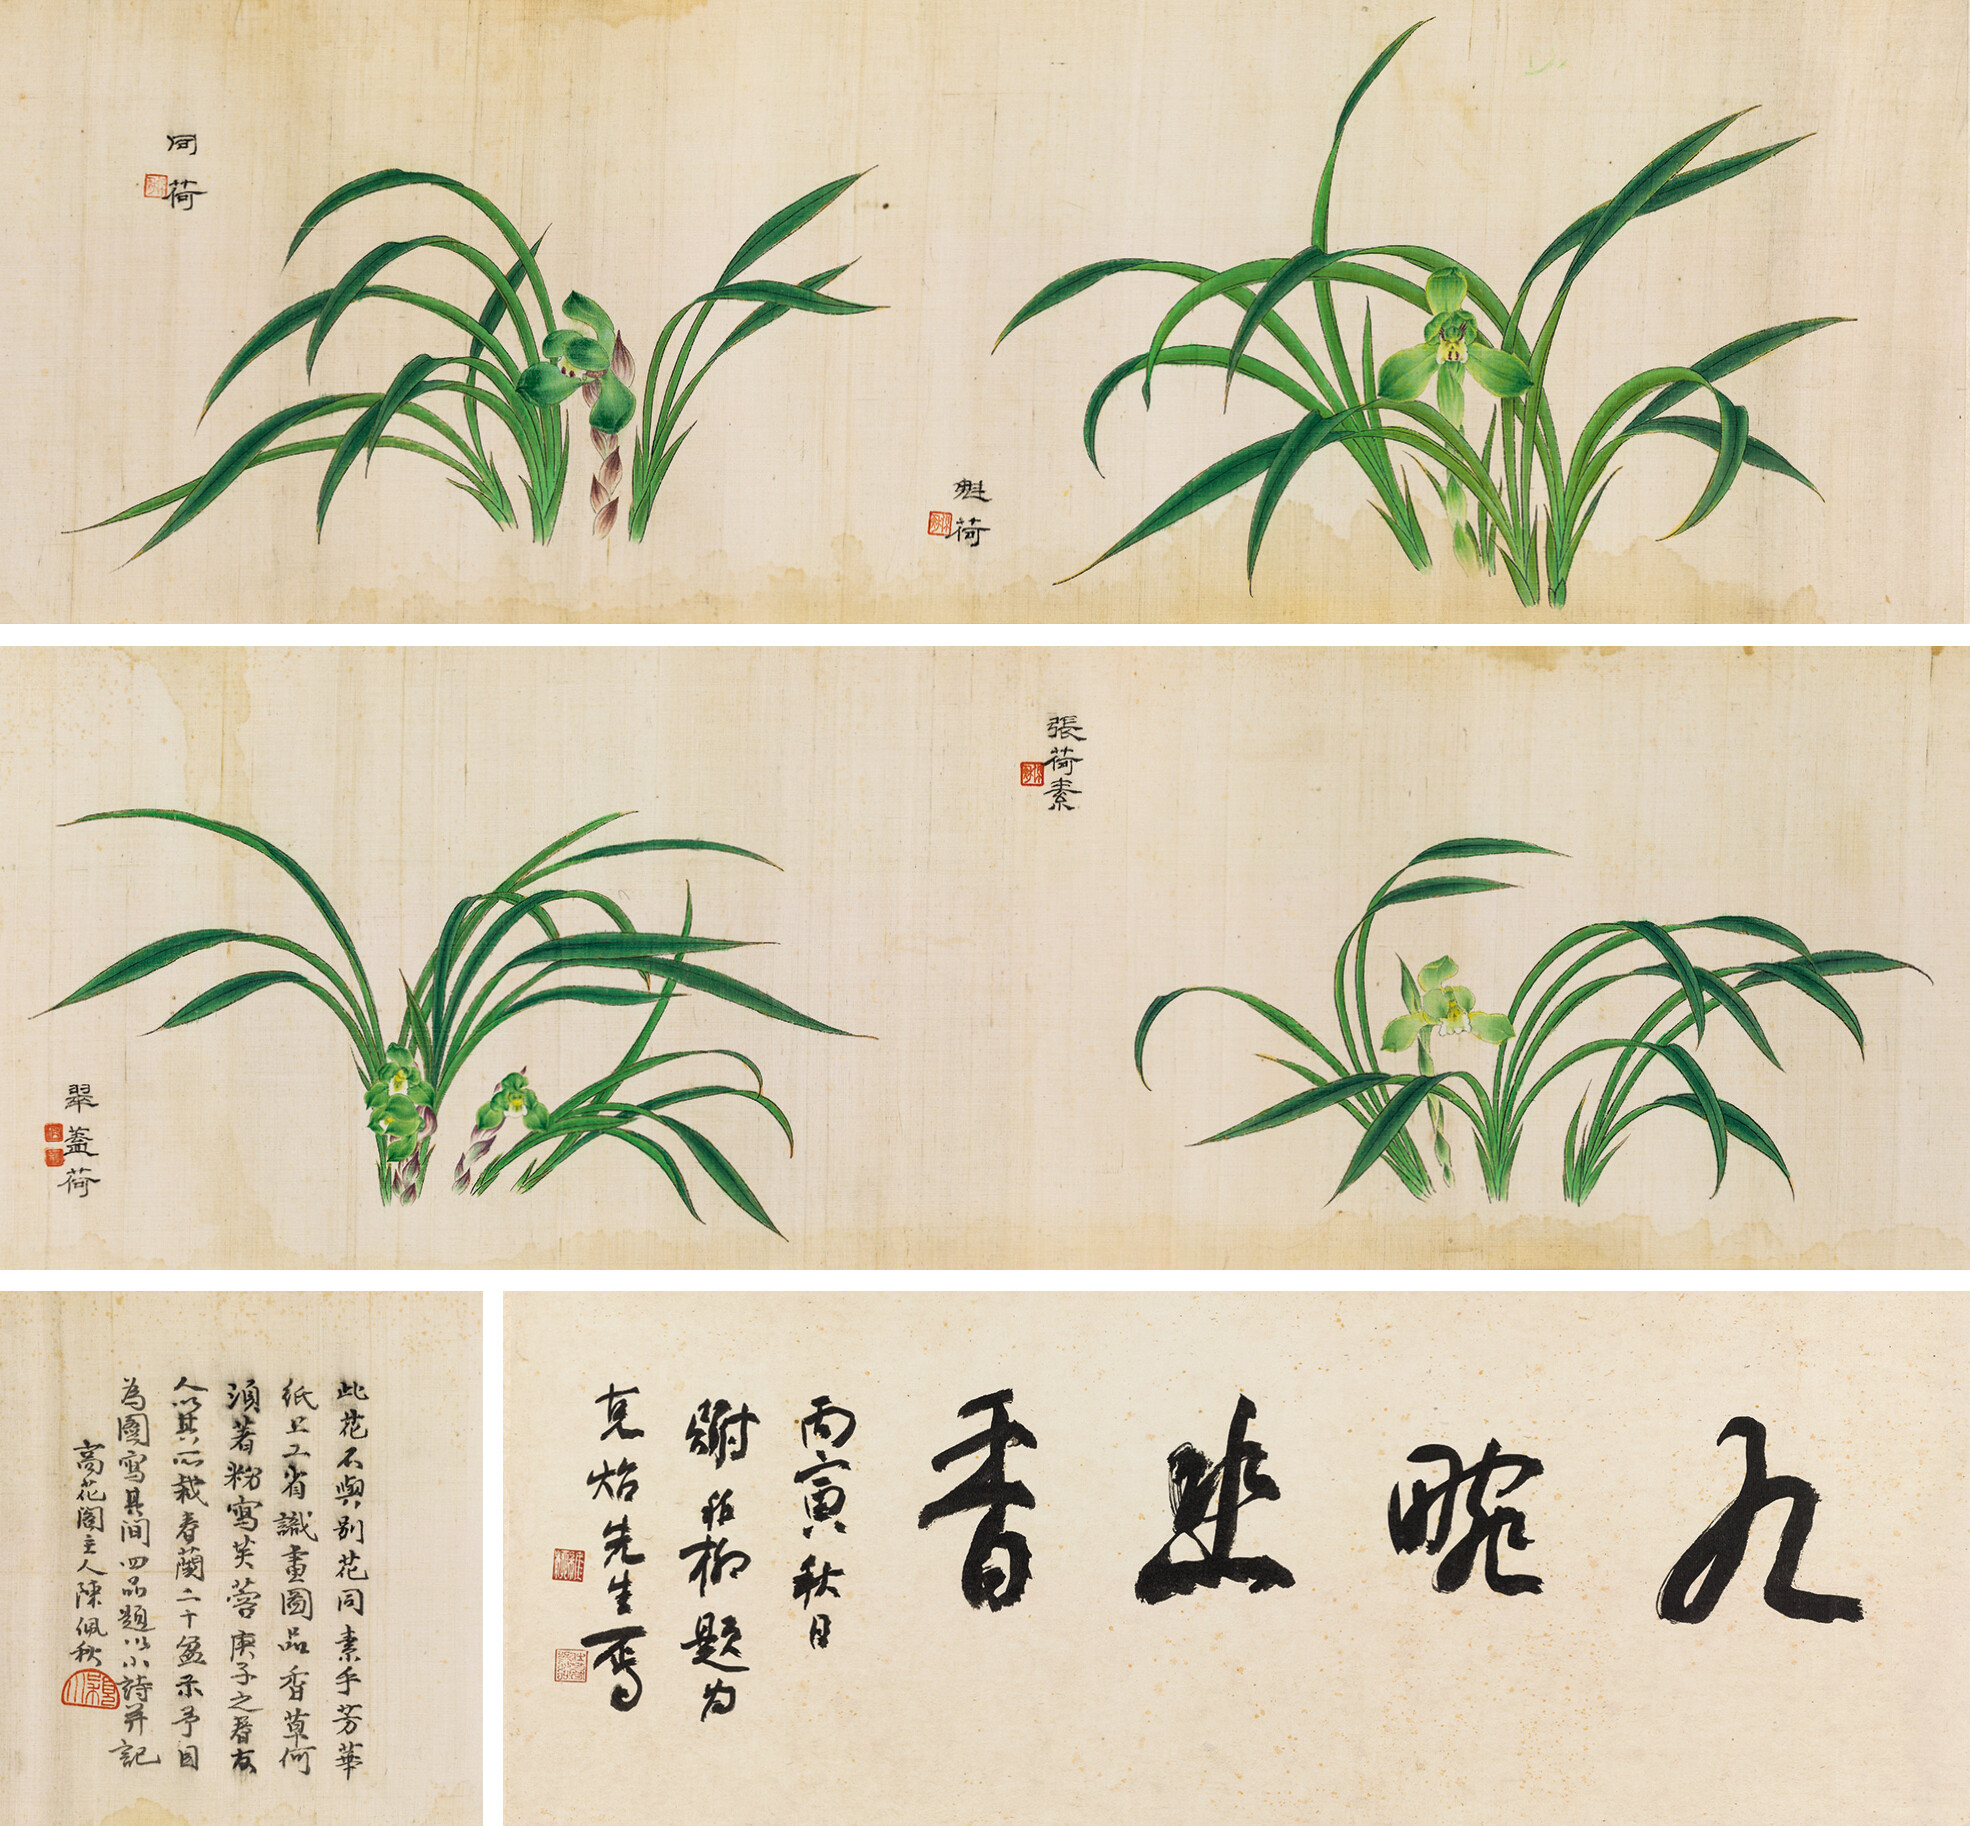 魁荷
同荷
張荷素
翠蓋荷
九畹幽香
丙寅秋日
謝稚柳題为
克 先生
此花不與別花同素手芳華
紙上工省識畫圖品香草何
須著粉寫芙蓉庚子之春友
人以其所栽春蘭二十盆示予因
為圖寫其間四品題以小詩并記
高花閣主人陳佩秋